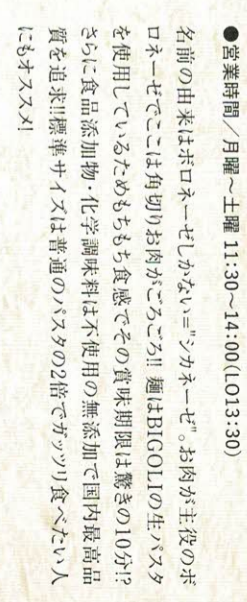 ●営業時間/月曜～土曜 11:30～14:00(LO13:30)
名前の由来はボロネーゼしかない="シカネーゼ"。お肉が主役のボ
ロネーゼでここは角切りお肉がごろごろ!! 麺はBIGOLIの生パスタ
を使用しているためもちもち食感でその賞味期限は驚きの10分!?
さらに食品添加物・化学調味料は不使用の無添加で国内最高品
質を追求!!標準サイズは普通のパスタの2倍でガッツリ食べたい人
にもオススメ!